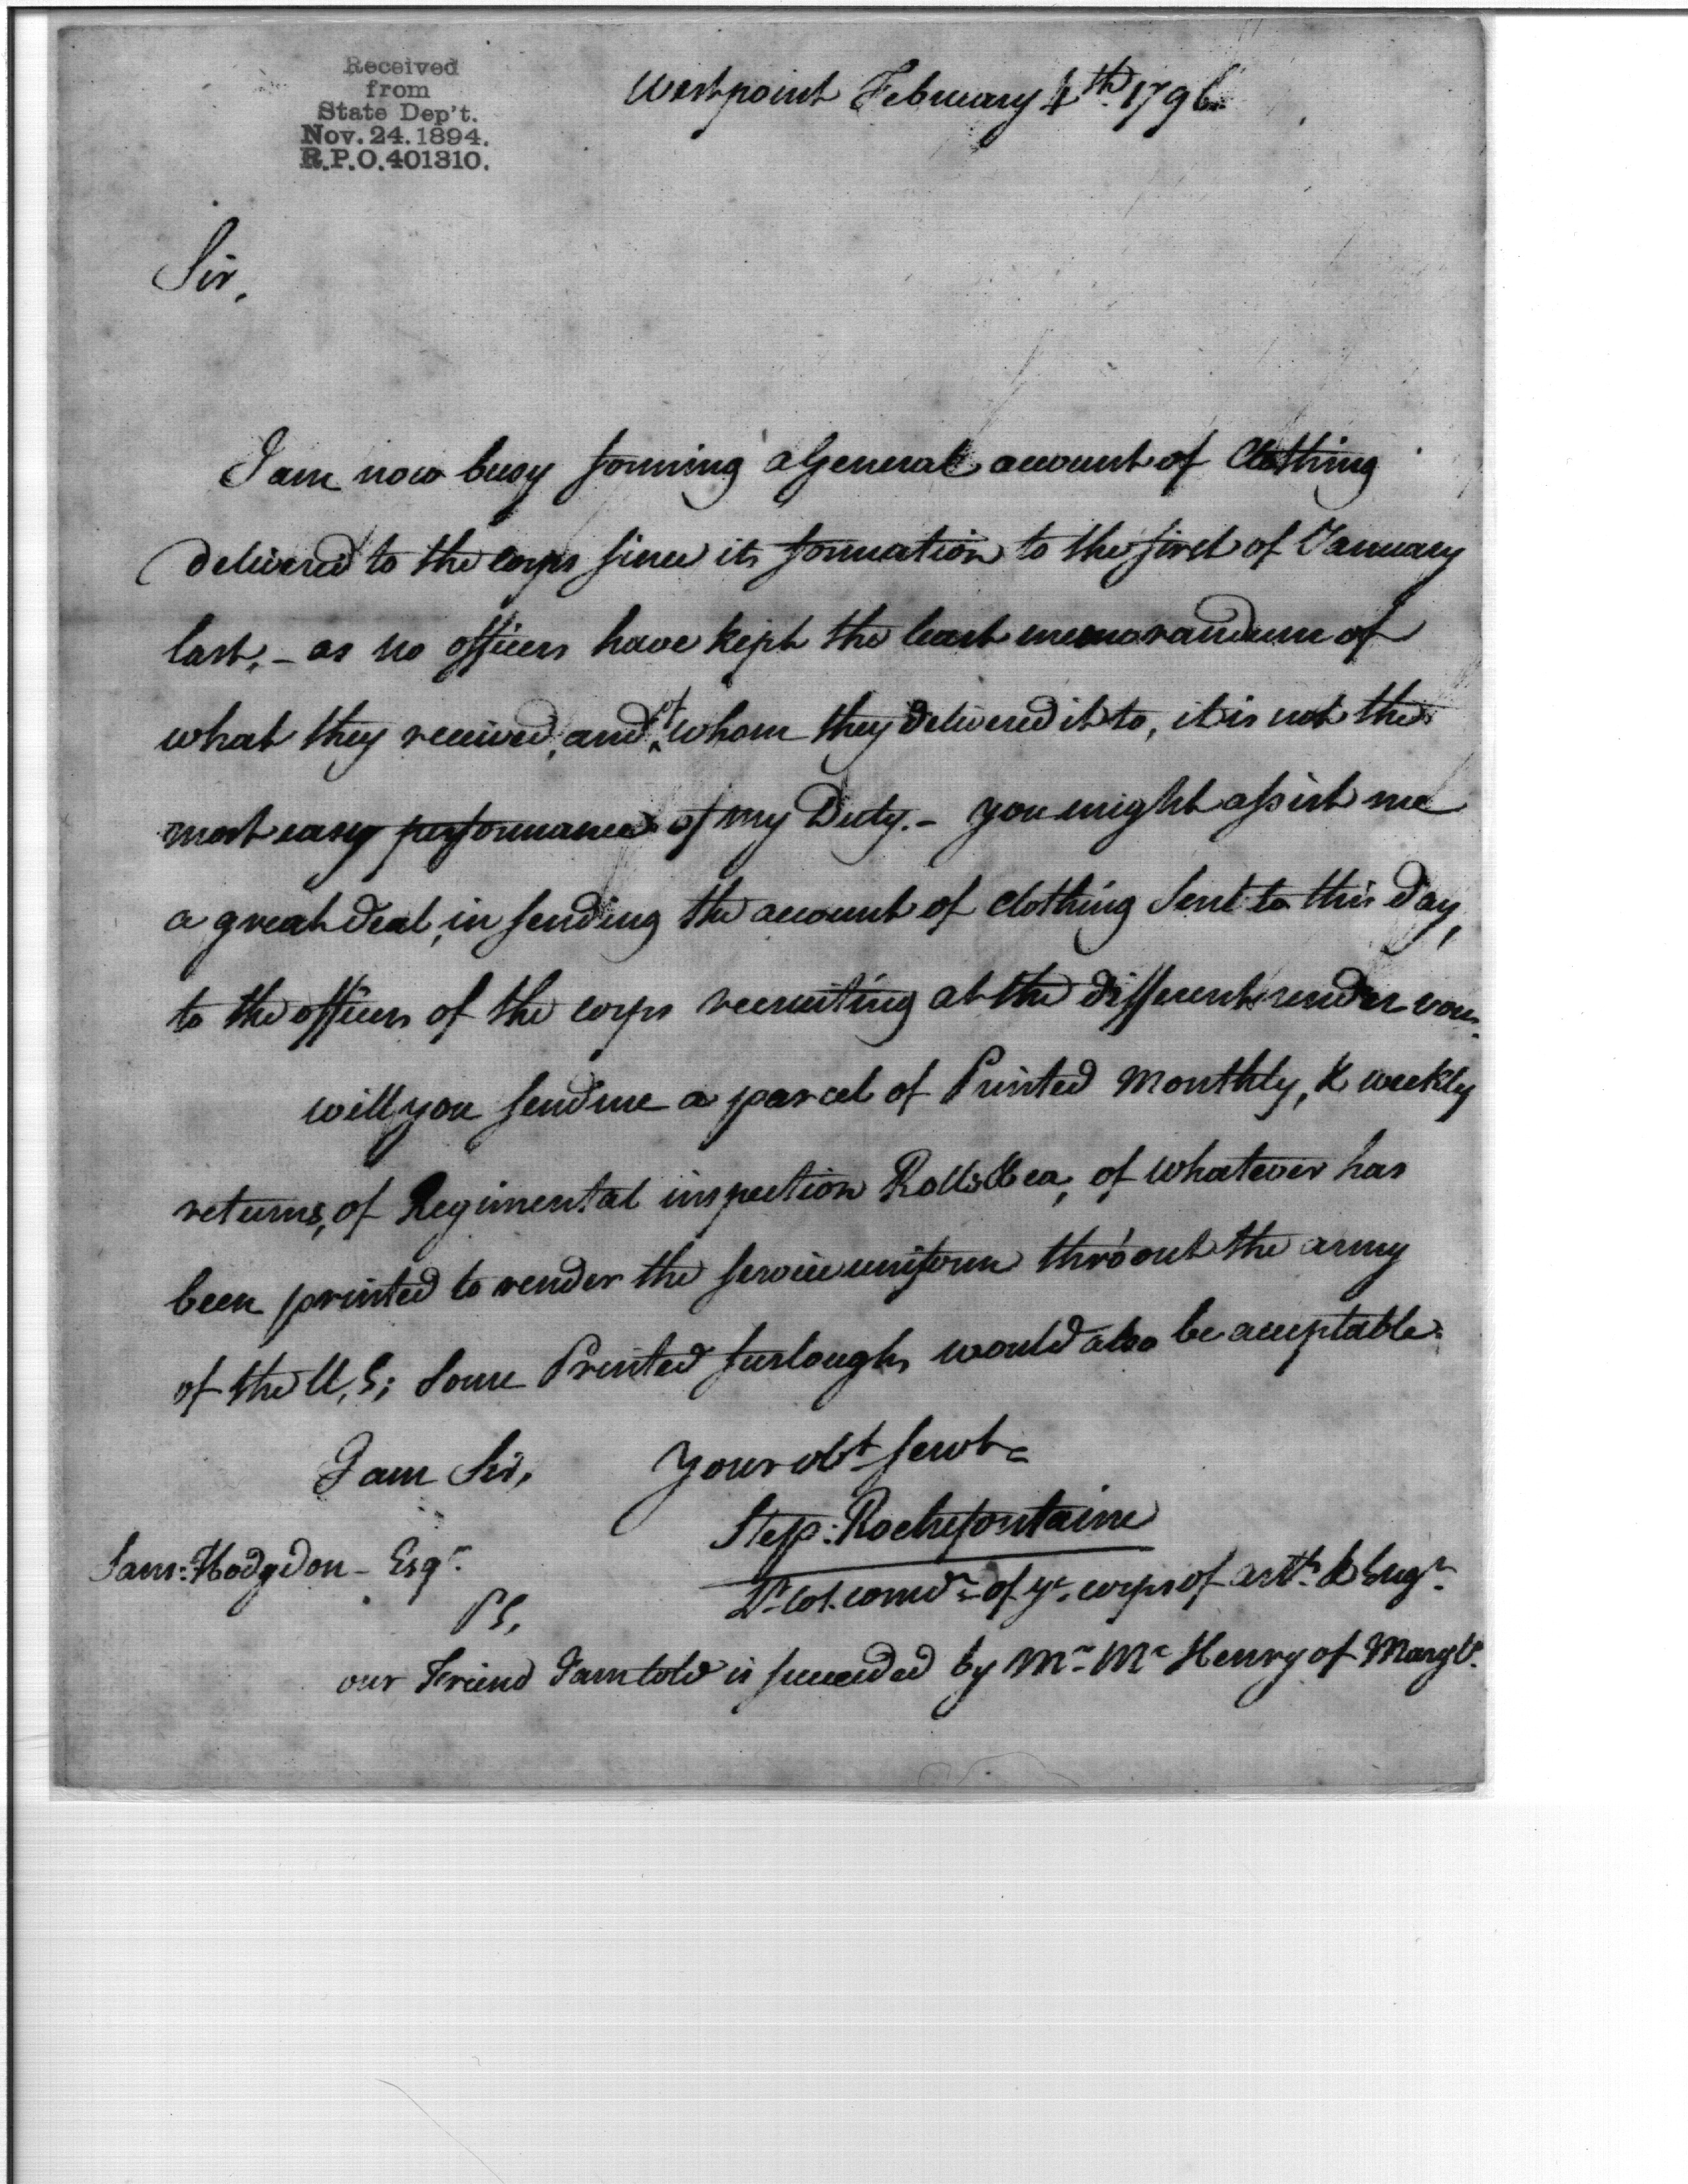 Received
from
State Dep't.
Nov. 24. 1894.
R.P.O. 401310.
Westpoint February 4th 1796.
Sir,
I am now busy forming a General account of Clothing
delivered to the corps since its formation to the first of January
last, - as no officers have kept the least memorandum of
what they received, and of whom they delivered it to, it is not the
most easy performance of my Duty. - you might assist me
a great deal, in sending the account of clothing sent to this day,
to the officers of the corps recruiting at the different rendez vous.
will you send me a parcel of Printed monthly, & weekly
returns, of Regimental inspection Rolls &ca, of whatever has
been printed to render the service uniform thro'out the army
of the U, S; some Printed furloughs would also be acceptable.
I am Sir, your obt servt
Step: Rochefontaine
Lt Col. comdt of ye corps of arty & Engrs
Sam: Hodgdon - Esqr
PS,
our Friend I am told is succeeded by Mr Mc Henry of Maryld.